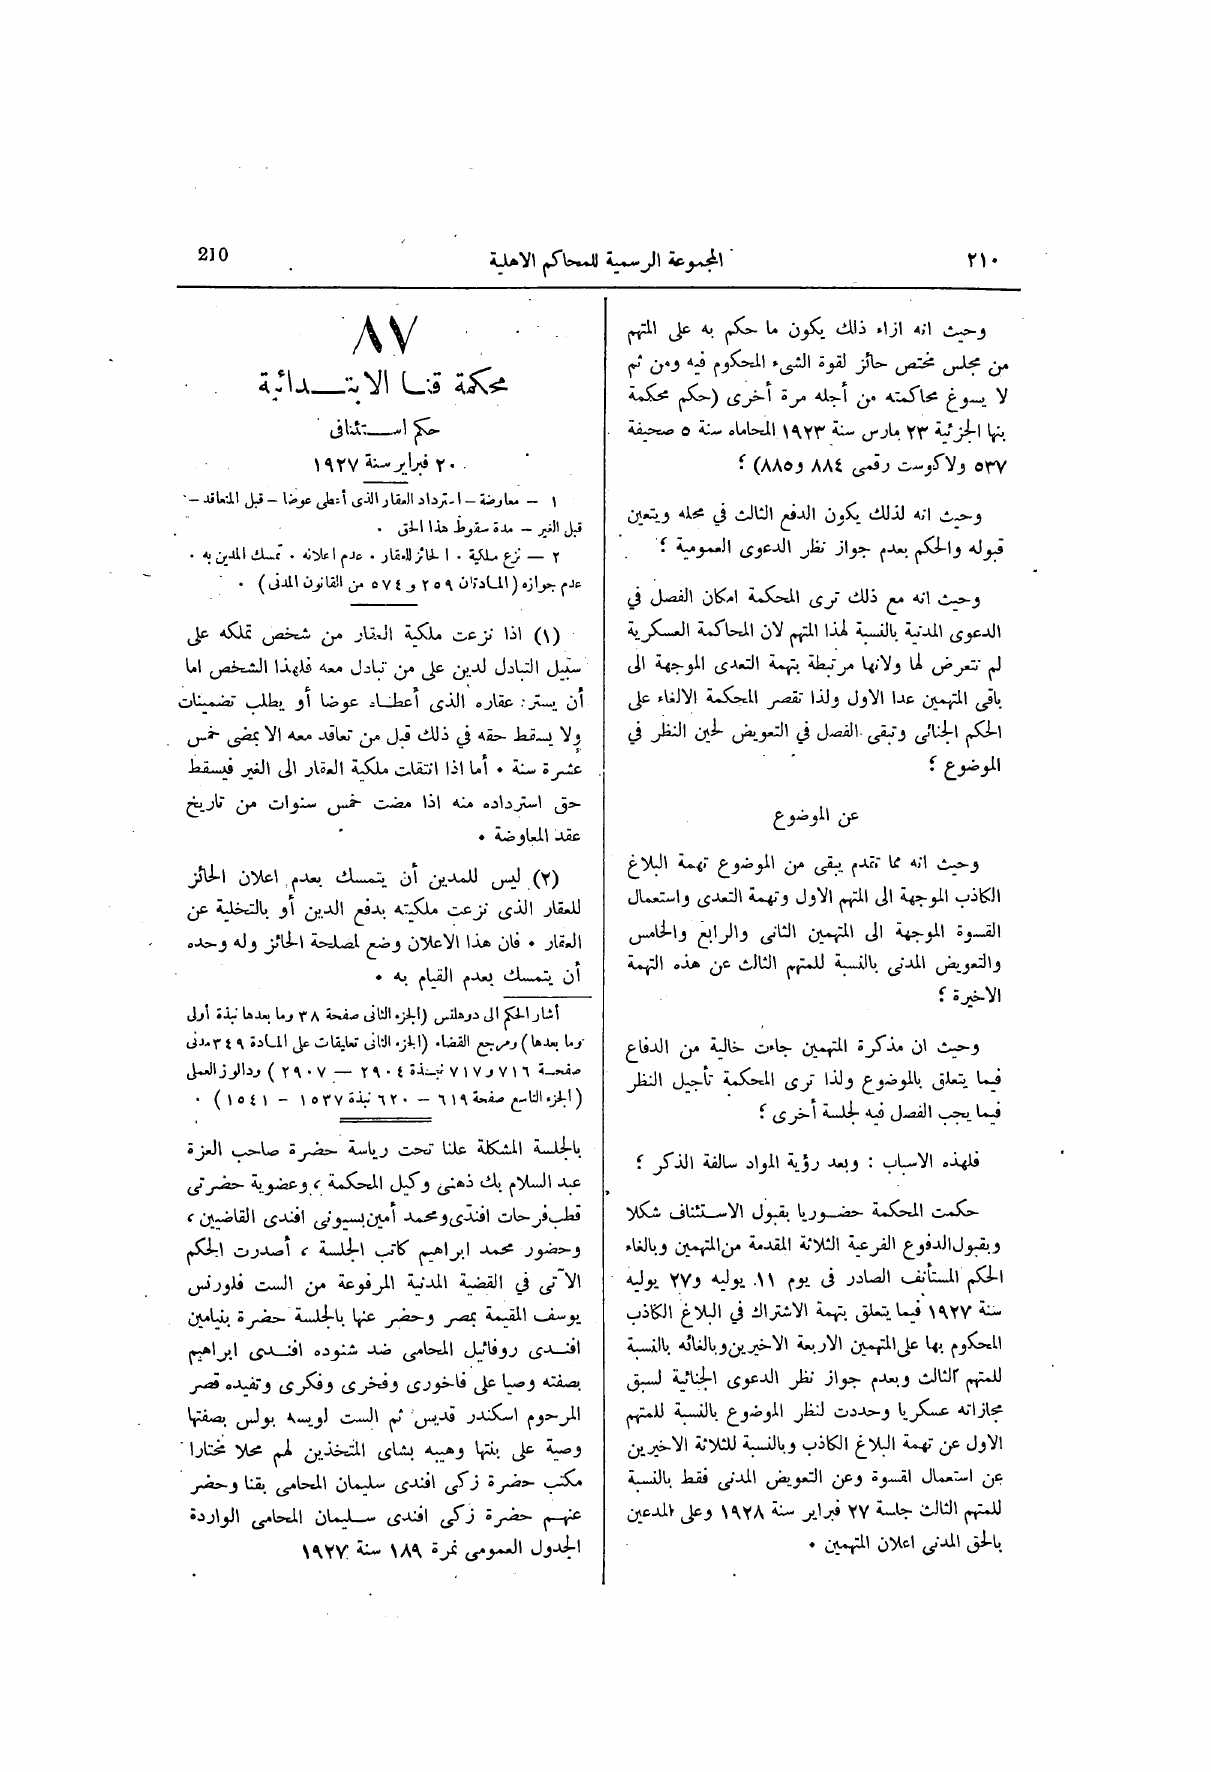 ٢١٠
المجموعة الرسمية للمحاكم الاهلية
210
وحيث انه ازاء ذلك يكون ما حكم به على المتهم
من مجلس مختص حائز لقوة الشىء المحكوم فيه ومن ثم
لا يسوغ محاكمته من أجله مرة أخرى (حكم محكمة
بنها الجزئية ٢٣ مارس سنة ١٩٢٣ المحاماه سنة ٥ صحيفة
٥٣٧ ولاكوست رقمى ٨٨٤ و٨٨٥) ؛
وحيث انه لذلك يكون الدفع الثالث في محله ويتعين
قبوله والحكم بعدم جواز نظر الدعوى العمومية ؛
وحيث انه مع ذلك ترى المحكمة امكان الفصل في
الدعوى المدنية بالنسبة لهذا المتهم لان المحاكمة العسكرية
لم تتعرض لها ولانها مرتبطة بتهمة التعدى الموجهة الى
باقى المتهمين عدا الاول ولذا تقصر المحكمة الالغاء على
الحكم الجنائى وتبقى الفصل في التعويض لحين النظر في
الموضوع ؛
عن الموضوع
وحيث انه مما تقدم يبقى من الموضوع تهمة البلاغ
الكاذب الموجهة الى المتهم الاول وتهمة التعدى واستعمال
القسوة الموجهة الى المتهمين الثانى والرابع والخامس
والتعويض المدنى بالنسبة للمتهم الثالث عن هذه التهمة
الاخيرة ؛
وحيث ان مذكرة المتهمين جاءت خالية من الدفاع
فيما يتعلق بالموضوع ولذا ترى المحكمة تأجيل النظر
فيما يجب الفصل فيه لجلسة أخرى ؛
فلهذه الاسباب : وبعد رؤية المواد سالفة الذكر ؛
حكمت المحكمة حضوريا بقبول الاستئناف شكلا
وبقبول الدفوع الفرعية الثلاثة المقدمة من المتهمين وبالغاء
الحكم المستأنف الصادر فى يوم ١١ يوليه و٢٧ يوليه
سنة ١٩٢٧ فيما يتعلق بتهمة الاشتراك في البلاغ الكاذب
المحكوم بها على المتهمين الاربعة الاخيرين وبالغائه بالنسبة
للمتهم الثالث وبعدم جواز نظر الدعوى الجنائية لسبق
مجازاته عسكريا وحددت لنظر الموضوع بالنسبة للمتهم
الاول عن تهمة البلاغ الكاذب وبالنسبة للثلاثة الاخيرين
عن استعمال القسوة وعن التعويض المدنى فقط بالنسبة
للمتهم الثالث جلسة ٢٧ فبراير سنة ١٩٢٨ وعلى المدعين
بالحق المدنى اعلان المتهمين ٠
٨٧
محكمة قنا الابتدائية
حكم استئنافى
٢٠ فبراير سنة ١٩٢٧
١ – معاوضة – استرداد العقار الذى أعطى عوضا – قبل المتعاقد –
قبل الغير – مدة سقوط هذا الحق ٠
٢ – نزع ملكية ٠ الحائز للعقار ٠ عدم اعلانه ٠ تمسك المدين به ٠
عدم جوازه (المادتان ٢٥٩ و ٥٧٤ من القانون المدنى) ٠
(١) اذا نزعت ملكية العقار من شخص تملكه على
سبيل التبادل لدين على من تبادل معه فلهذا الشخص اما
أن يسترد عقاره الذى أعطاه عوضا أو يطلب تضمينات
ولا يسقط حقه في ذلك قبل من تعاقد معه الا بمضى خمس
عشرة سنة ٠ أما اذا انتقلت ملكية العقار الى الغير فيسقط
حق استرداده منه اذا مضت خمس سنوات من تاريخ
عقد المعاوضة ٠
(٢) ليس للمدين أن يتمسك بعدم اعلان الحائز
للعقار الذى نزعت ملكيته بدفع الدين أو بالتخلية عن
العقار ٠ فان هذا الاعلان وضع لمصلحة الحائز وله وحده
أن يتمسك بعدم القيام به ٠
أشار الحكم الى دوهلتس (الجزء الثانى صفحة ٣٨ وما بعدها نبذة أولى
وما بعدها) ومرجع القضاء (الجزء الثانى تعليقات على المادة ٣٤٩ مدنى
صفحة ٧١٦ و ٧١٧ نبذة ٢٩٠٤ – ٢٩٠٧) ودالوز العملى
(الجزء التاسع صفحة ٦١٩ – ٦٢٠ نبذة ١٥٣٧ – ١٥٤١) ٠
بالجلسة المشكلة علنا تحت رياسة حضرة صاحب العزة
عبد السلام بك ذهنى وكيل المحكمة ، وعضوية حضرتى
قطب فرحات افندى ومحمد أمين بسيونى افندى القاضيين ،
وحضور محمد ابراهيم كاتب الجلسة ، أصدرت الحكم
الآتى في القضية المدنية المرفوعة من الست فلورنس
يوسف المقيمة بمصر وحضر عنها بالجلسة حضرة بنيامين
افندى روفائيل المحامى ضد شنوده افندى ابراهيم
بصفته وصيا على فاخورى وفخرى وفكرى وتفيده قصر
المرحوم اسكندر قديس ثم الست لويسه بولس بصفتها
وصية على بنتها وهيبه بشاى المتخذين لهم محلا مختارا
مكتب حضرة زكى افندى سليمان المحامى بقنا وحضر
عنهم حضرة زكى افندى سليمان المحامى الواردة
الجدول العمومى نمرة ١٨٩ سنة ١٩٢٧